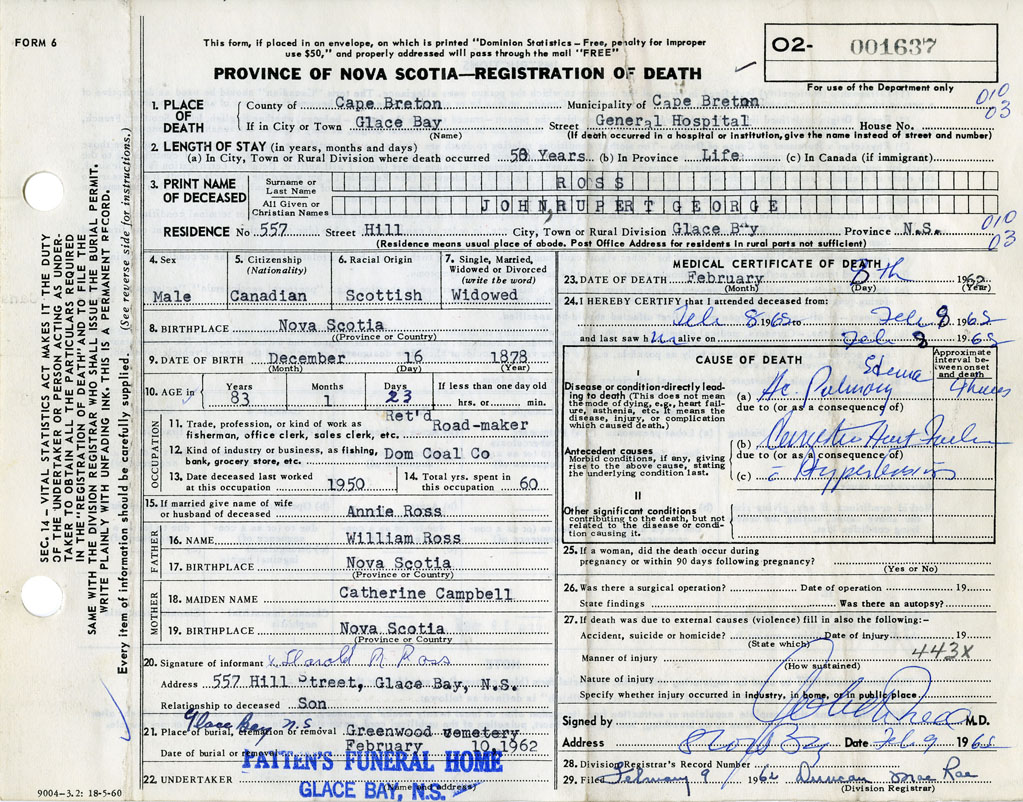 FORM 6
This form, if placed in an envelope, on which is printed "Dominion Statistics – Free, penalty for improper
use $50," and properly addressed will pass through the mail "FREE"
O2- 001637
For use of the Department only
PROVINCE OF NOVA SCOTIA—REGISTRATION OF DEATH
010
03
1. PLACE OF DEATH
County of Cape Breton Municipality of Cape Breton
If in City or Town Glace Bay Street General Hospital House No.
(Name) (If death occurred in a hospital or institution, give the name instead of street and number)
2. LENGTH OF STAY (in years, months and days)
(a) In City, Town or Rural Division where death occurred 58 Years (b) In Province Life (c) In Canada (if immigrant)
3. PRINT NAME OF DECEASED
Surname or Last Name ROSS
All Given or Christian Names JOHN, RUPERT GEORGE
RESIDENCE No 557 Street Hill City, Town or Rural Division Glace Bay Province N.S.
010
03
(Residence means usual place of abode. Post Office Address for residents in rural parts not sufficient)
4. Sex
Male
5. Citizenship
(Nationality)
Canadian
6. Racial Origin
Scottish
7. Single, Married,
Widowed or Divorced
(write the word)
Widowed
8. BIRTHPLACE Nova Scotia
(Province or Country)
9. DATE OF BIRTH December 16 1878
(Month) (Day) (Year)
10. AGE in
Years 83
Months 1
Days 23
If less than one day old
hrs. or min.
OCCUPATION
Ret'd
11. Trade, profession, or kind of work as Road-maker
fisherman, office clerk, sales clerk, etc.
12. Kind of industry or business, as fishing, Dom Coal Co
bank, grocery store, etc.
13. Date deceased last worked
at this occupation 1950
14. Total yrs. spent in
this occupation 60
15. If married give name of wife
or husband of deceased Annie Ross
FATHER
16. NAME William Ross
17. BIRTHPLACE Nova Scotia
(Province or Country)
MOTHER
18. MAIDEN NAME Catherine Campbell
19. BIRTHPLACE Nova Scotia
(Province or Country
20. Signature of informant x Harold R Ross
Address 557 Hill Street, Glace Bay, N.S.
Relationship to deceased Son
Glace Bay N.S.
21. Place of burial, cremation or removal Greenwood cemetery
Date of burial or removal February 10, 1962
22. UNDERTAKER
(Name and address)
PATTEN'S FUNERAL HOME
GLACE BAY, N.S.
9004–3.2: 18-5-60
MEDICAL CERTIFICATE OF DEATH
23. DATE OF DEATH February 8th 1962
(Month) (Day) (Year)
24. I HEREBY CERTIFY that I attended deceased from:
Feb 8 1962 to Feb 8 1962
and last saw him alive on Feb 8 1962
CAUSE OF DEATH
Approximate
interval be-
tween onset
and death
I
Disease or condition directly lead-
ing to death (This does not mean
the mode of dying, e.g., heart fail-
ure, asthenia, etc. It means the
disease, injury, or complication
which caused death.)
(a) Ac. Pulmonary Edema
due to (or as a consequence of)
Antecedent causes
Morbid conditions, if any, giving
rise to the above cause, stating
the underlying condition last.
(b) Congestive Heart Failure
due to (or as a consequence of)
(c) Hypertension
II
Other significant conditions
contributing to the death, but not
related to the disease or condi-
tion causing it.
25. If a woman, did the death occur during
pregnancy or within 90 days following pregnancy?
(Yes or No)
26. Was there a surgical operation? Date of operation 19
State findings Was there an autopsy?
27. If death was due to external causes (violence) fill in also the following:–
Accident, suicide or homicide? Date of injury 19
(State which)
443X
Manner of injury
(How sustained)
Nature of injury
Specify whether injury occurred in industry, in home, or in public place
Signed by M.D.
Address Glace Bay Date Feb 9 1962
28. Division Registrar's Record Number
29. Filed February 9 1962 Duncan MacRae
(Division Registrar)
SEC. 14 – VITAL STATISTICS ACT MAKES IT THE DUTY
OF THE UNDERTAKER OR PERSON ACTING AS UNDER-
TAKER TO OBTAIN ALL THE PARTICULARS REQUIRED
IN THE "REGISTRATION OF DEATH" AND TO FILE THE
SAME WITH THE DIVISION REGISTRAR WHO SHALL ISSUE THE BURIAL PERMIT.
WRITE PLAINLY WITH UNFADING INK. THIS IS A PERMANENT RECORD.
Every item of information should be carefully supplied. (See reverse side for instructions.)